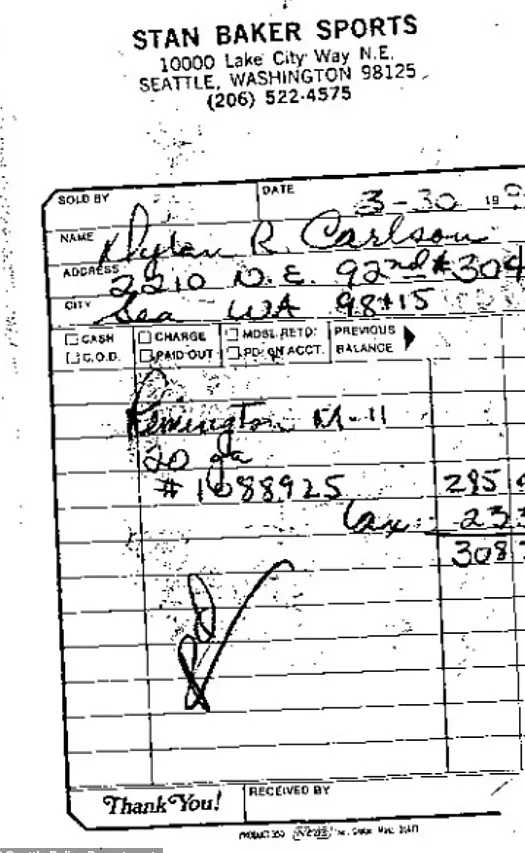 STAN BAKER SPORTS
10000 Lake City Way N.E.
SEATTLE, WASHINGTON 98125
(206) 522-4575
SOLD BY DATE 3-30 19
NAME Dylan R. Carlson
ADDRESS 2210 N.E. 92nd #304
CITY Sea WA 98115
CASH CHARGE MDSE. RETD. PREVIOUS
C.O.D. PAID OUT PD. ON ACCT. BALANCE
Remington M-11
20 ga
# 1088925 285
tax 23
308
Thank You! RECEIVED BY